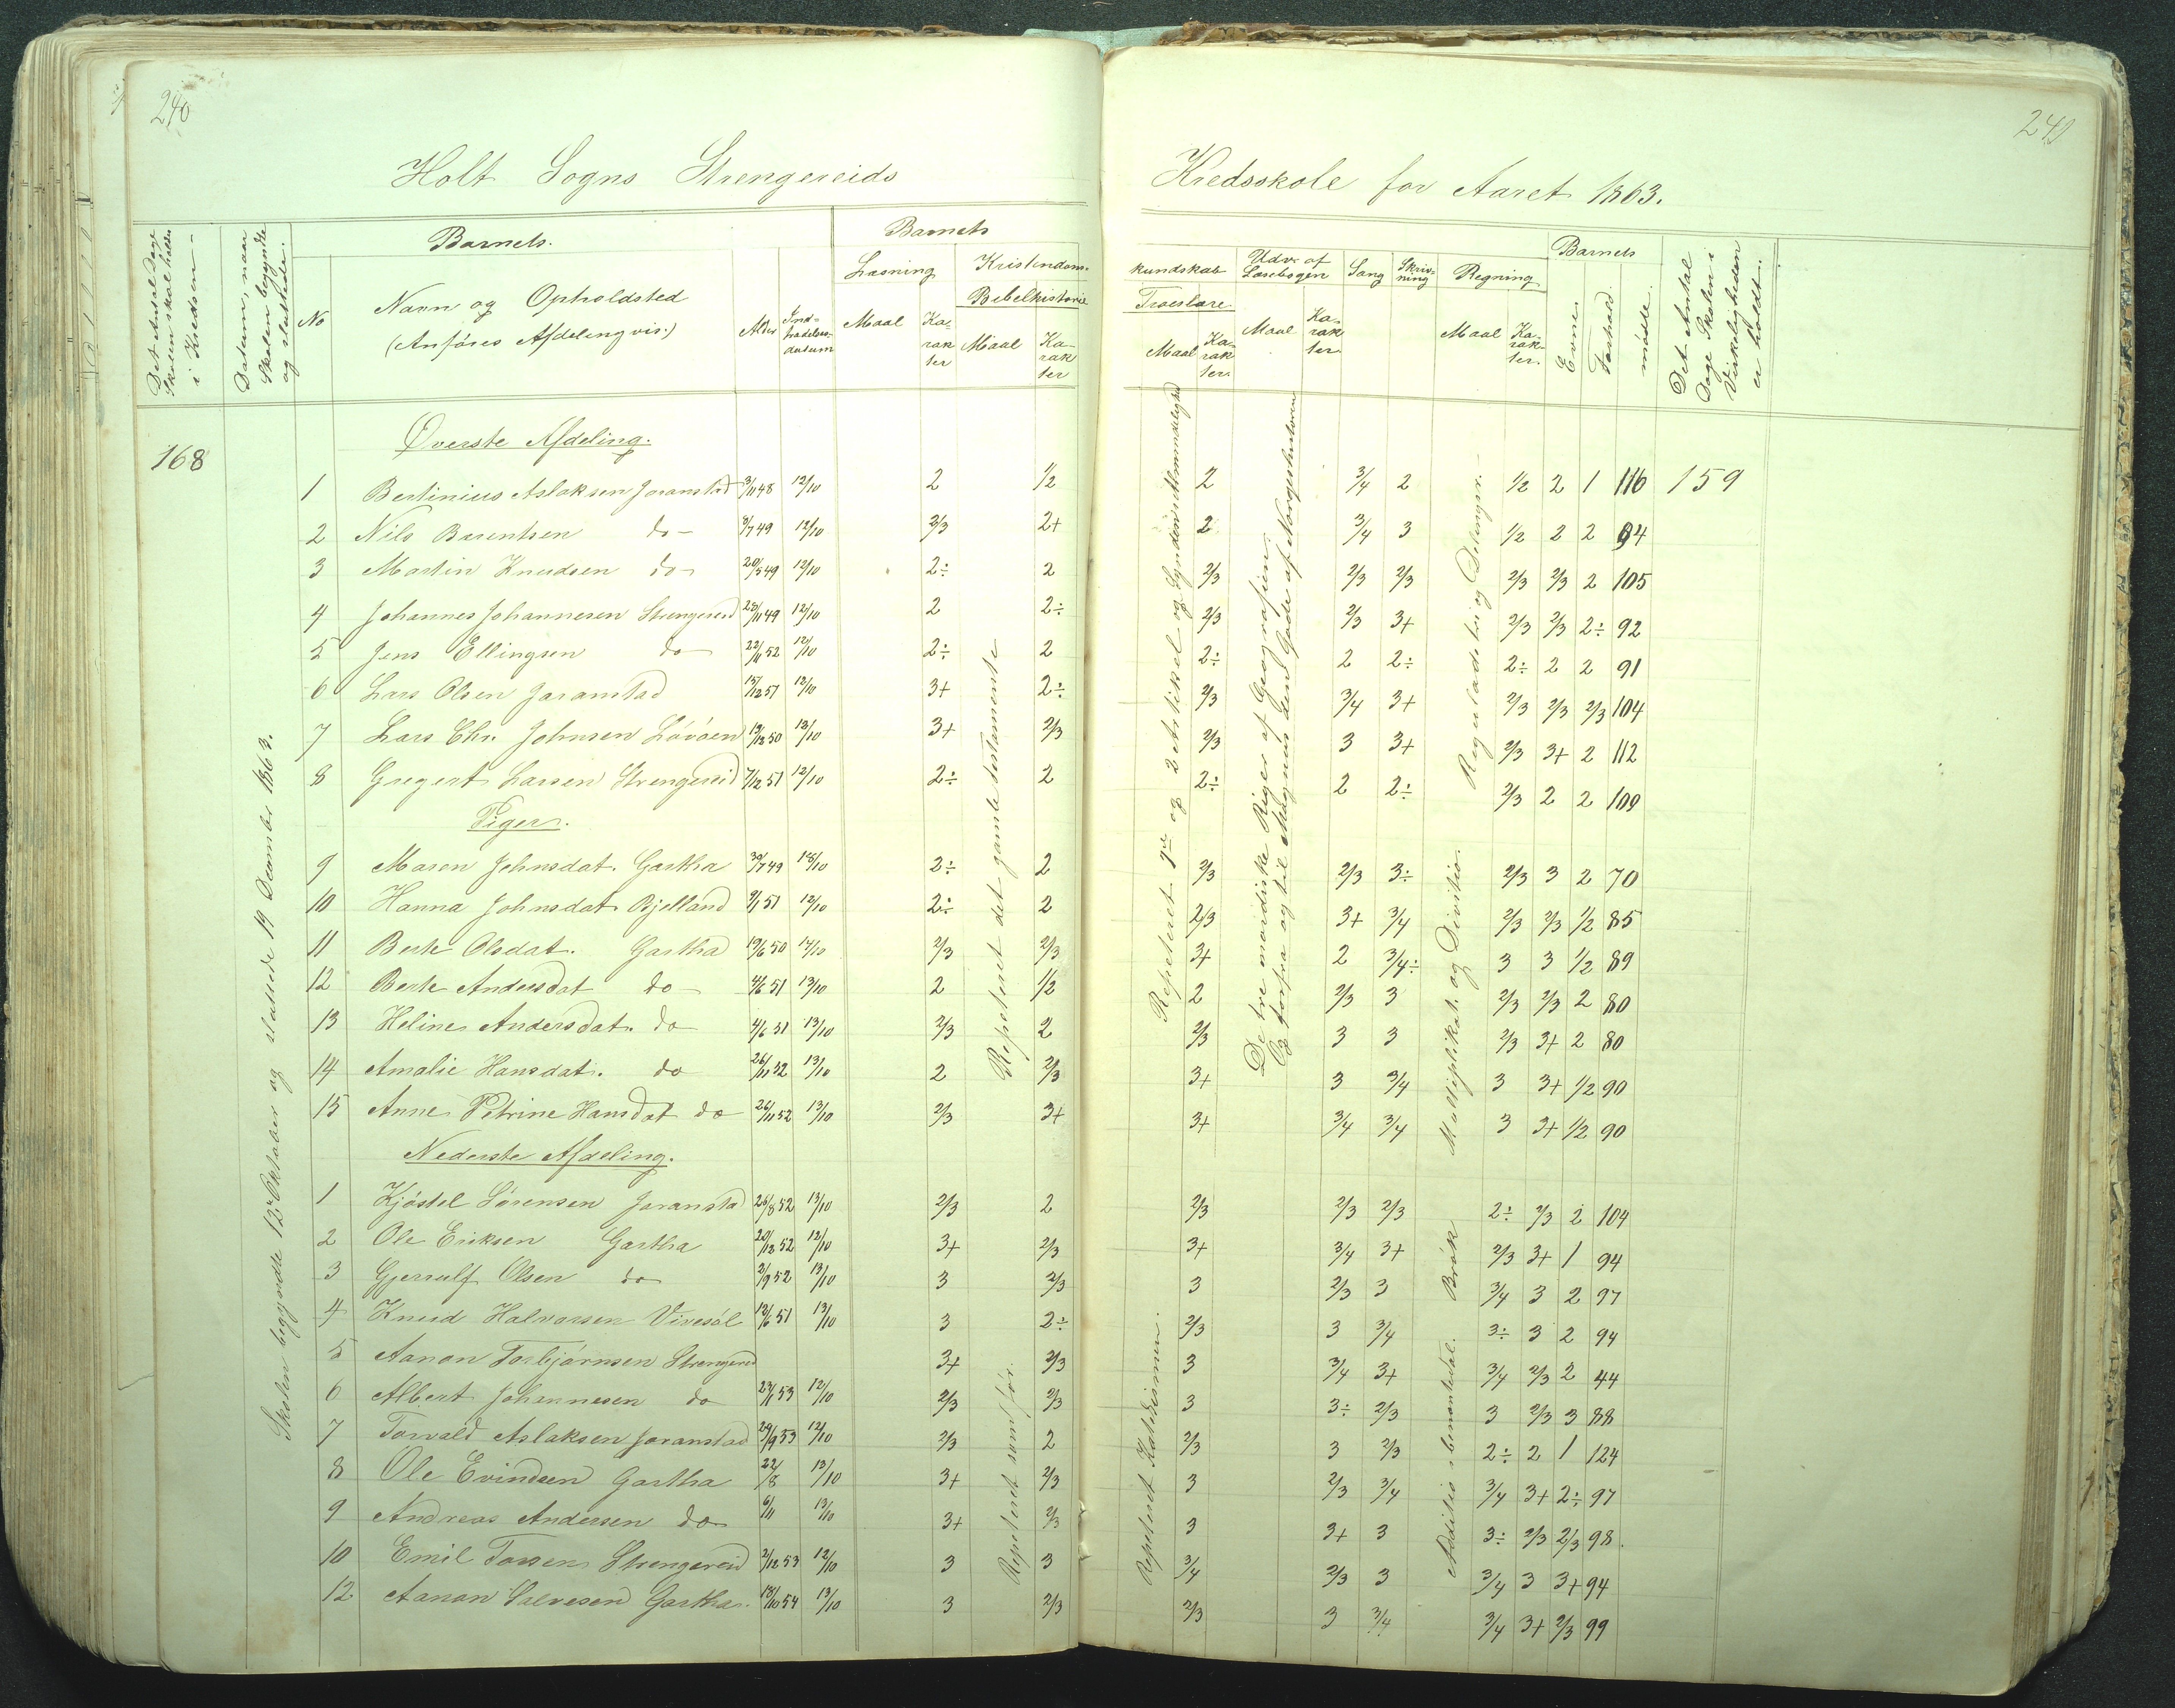 240
Holt Sogns Strengereids
Det Antal Dage Skolen skal holdes i Kredsen
Datum, naar Skolen begyndte og sluttede.
Barnets.
No
Navn og Opholdsted
(Anføres Afdelingvis.)
Alder
Ind-
trædelses-
datum
Barnets
Læsning
Maal
Ka-
rak
ter
Kristendoms-
Bibelhistorie
Maal
Ka-
rak
ter
168
Skolen begyndte 12te Oktober og sluttede 19 December 1863.
Øverste Afdeling.
1 Bertinius Aslaksen Joranstad 3/11 48 12/10 2 1/2
2 Nils Barentsen do- 8/7 49 12/10 2/3 2+
3 Martin Knudsen do- 20/5 49 12/10 2÷ 2
4 Johannes Johannesen Strengereid 23/11 49 12/10 2 2÷
5 Jens Ellingsen do 22/11 52 12/10 2÷ 2
6 Lars Olsen Joranstad 15/12 51 12/10 3+ 2÷
7 Lars Chr. Johnsen Løvøen 19/12 50 13/10 3+ 2/3
8 Gregert Larsen Strengereid 7/12 51 12/10 2÷ 2
Piger.
9 Maren Johnsdat. Gartha 30/7 49 13/10 2÷ 2
10 Hanna Johnsdat. Bjelland 9/1 51 12/10 2÷ 2
11 Berte Olsdat. Gartha 19/6 50 14/10 2/3 2/3
12 Berte Andersdat do- 4/6 51 13/10 2 1/2
13 Heline Andersdat. do 4/6 51 13/10 2/3 2
14 Amalie Hansdat. do 26/11 52 13/10 2 2/3
15 Anne Petrine Hansdat do 26/11 52 13/10 2/3 3+
Repeteret det gamle testamente
Nederste Afdeling.
1 Kjøstel Sørensen Joranstad 26/8 52 13/10 2/3 2
2 Ole Eriksen Gartha 20/12 52 12/10 3+ 2/3
3 Gjerulf Olsen do 2/9 52 13/10 3 2/3
4 Knud Halvorsen Vivesøl 13/6 51 13/10 3 2÷
5 Aanon Torbjørnsen Strengereid 3+ 2/3
6 Albert Johannesen do 23/11 53 12/10 2/3 2/3
7 Torvald Aslaksen Joranstad 29/9 53 12/10 2/3 2
8 Ole Evindsen Gartha 22/8 13/10 3+ 2/3
9 Andreas Andersen do 6/11 13/10 3+ 2/3
10 Emil Torsen Strengereid 2/12 53 12/10 3 3
12 Aanon Salvesen Gartha. 18/10 54 13/10 3 2/3
Repeteret som før.
241
Kredsskole for Aaret 1863.
kundskab
Troeslære
Maal
Ka-
rak
ter.
Udv. af
Læsebogen
Maal
Ka-
rak
ter.
Sang
Skriv-
ning
Regning
Maal
Ka-
rak-
ter.
Barnets
Evner
Forhold.
mødte.
Det Antal Dage Skolen i Virkeligheden er holdt.
Repeteret 1ste og 2 Artikel og Synden i Almindelighed
De tre nordiske Riger af Geografien.
Og forfra og til Magnus den Gode af Norgeshistorien
Reguladetri og Delingsr.
2 3/4 2 1/2 2 1 116 159
2 3/4 3 1/2 2 2 94
2/3 2/3 2/3 2/3 2/3 2 105
2/3 2/3 3+ 2/3 2/3 2÷ 92
2÷ 2 2÷ 2÷ 2 2 91
2/3 3/4 3+ 2/3 2/3 2/3 104
2/3 3 3+ 2/3 3+ 2 112
2÷ 2 2÷ 2/3 2 2 109
Multiplikat. og Divisio.
2/3 2/3 3÷ 2/3 3 2 70
2/3 3+ 3/4 2/3 2/3 1/2 85
3+ 2 3/4÷ 3 3 1/2 89
2 2/3 3 2/3 2/3 2 80
2/3 3 3 2/3 3+ 2 80
3+ 3 3/4 3 3+ 1/2 90
3+ 3/4 3/4 3 3+ 1/2 90
Repeteret Katekismen.
Brøk
Additio i benævntetal.
2/3 2/3 2/3 2÷ 2/3 2 104
3+ 3/4 3+ 2/3 3+ 1 94
3 2/3 3 3/4 3 2 97
2/3 3 3/4 3÷ 3 2 94
3 3/4 3+ 3/4 2/3 2 44
3 3÷ 2/3 3 2/3 3 88
2/3 3 2/3 2÷ 2 1 124
3 2/3 3/4 3/4 3+ 2÷ 97
3 3+ 3 3÷ 2/3 2/3 98.
3/4 2/3 3 3/4 3 3+ 94
2/3 3 3/4 3/4 3+ 2/3 99